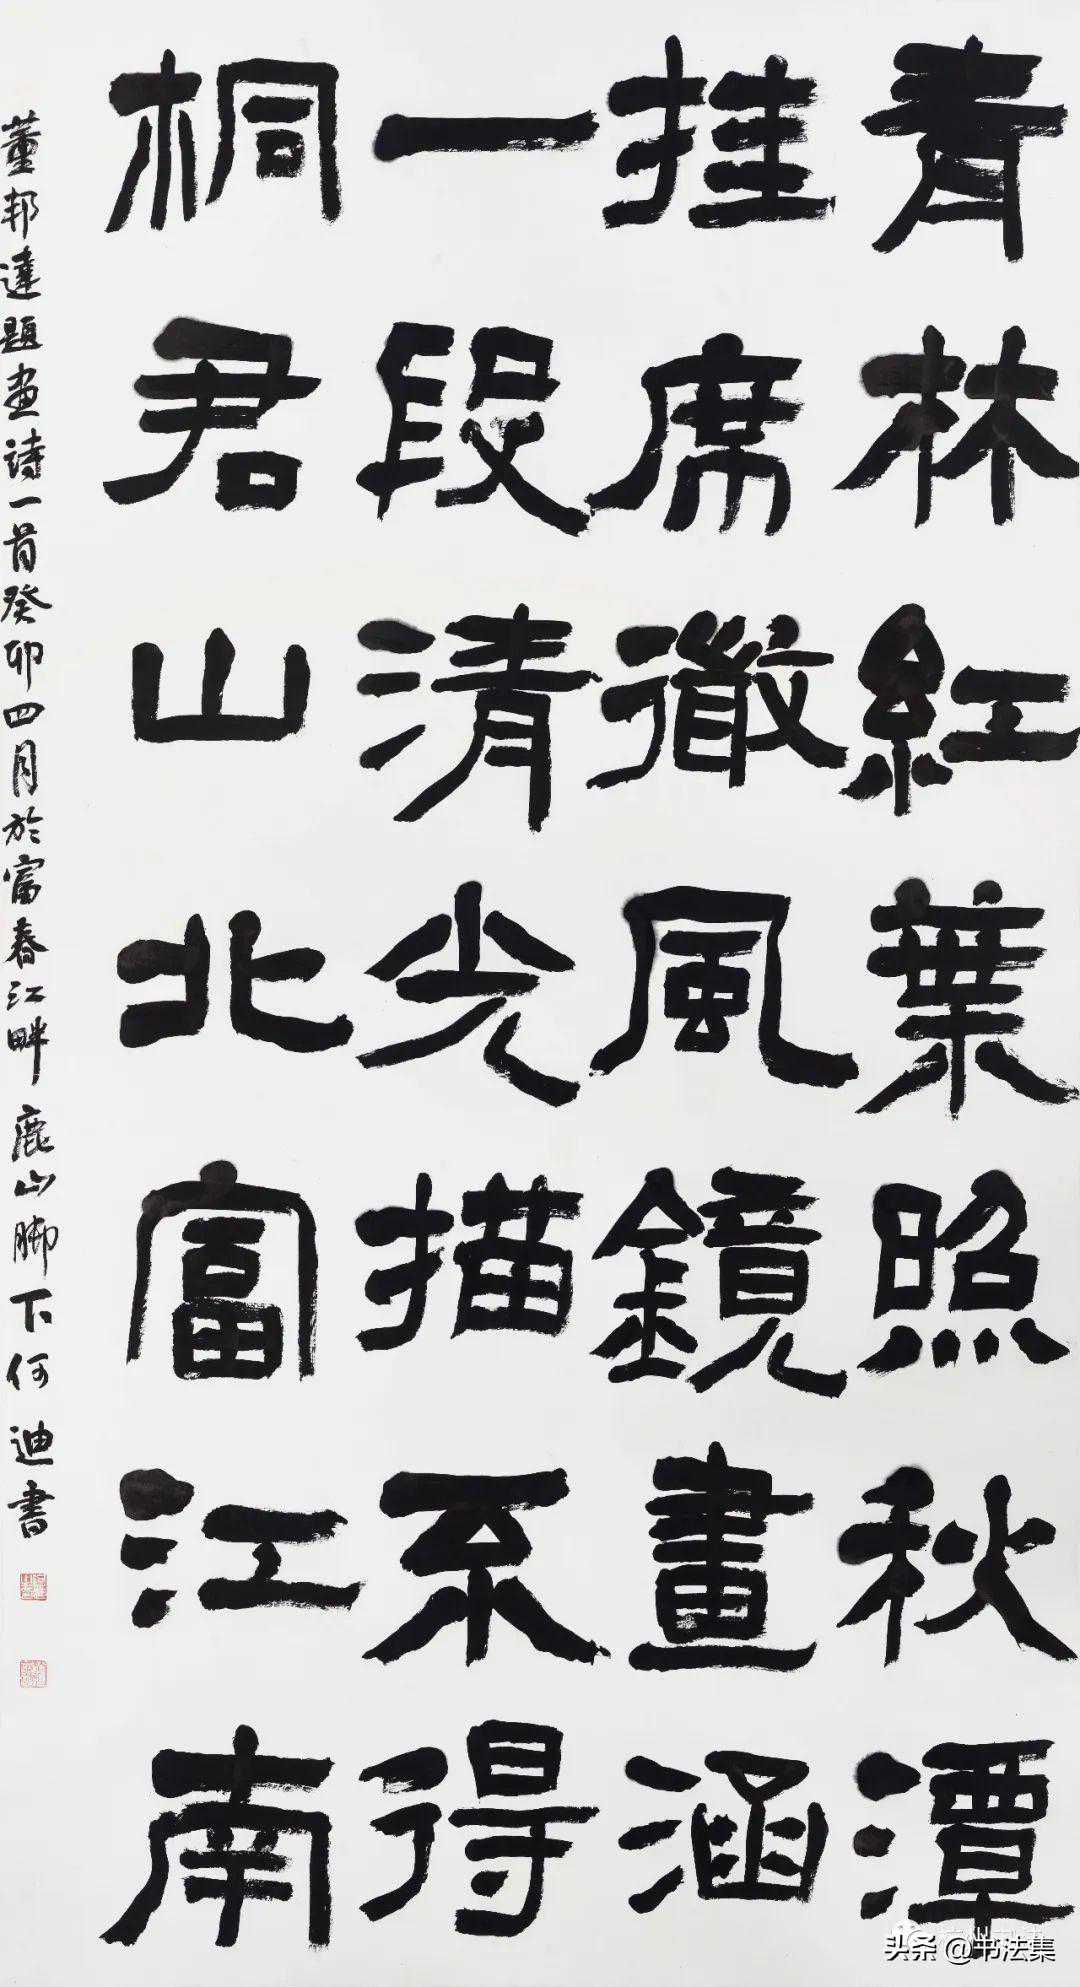 青林紅葉照秋潭
挂席微風鏡畫涵
一段清光描不得
桐君山北富江南
董邦達題畫詩一首癸卯四月於富春江畔鹿山腳下何迪書
头条 @书法集